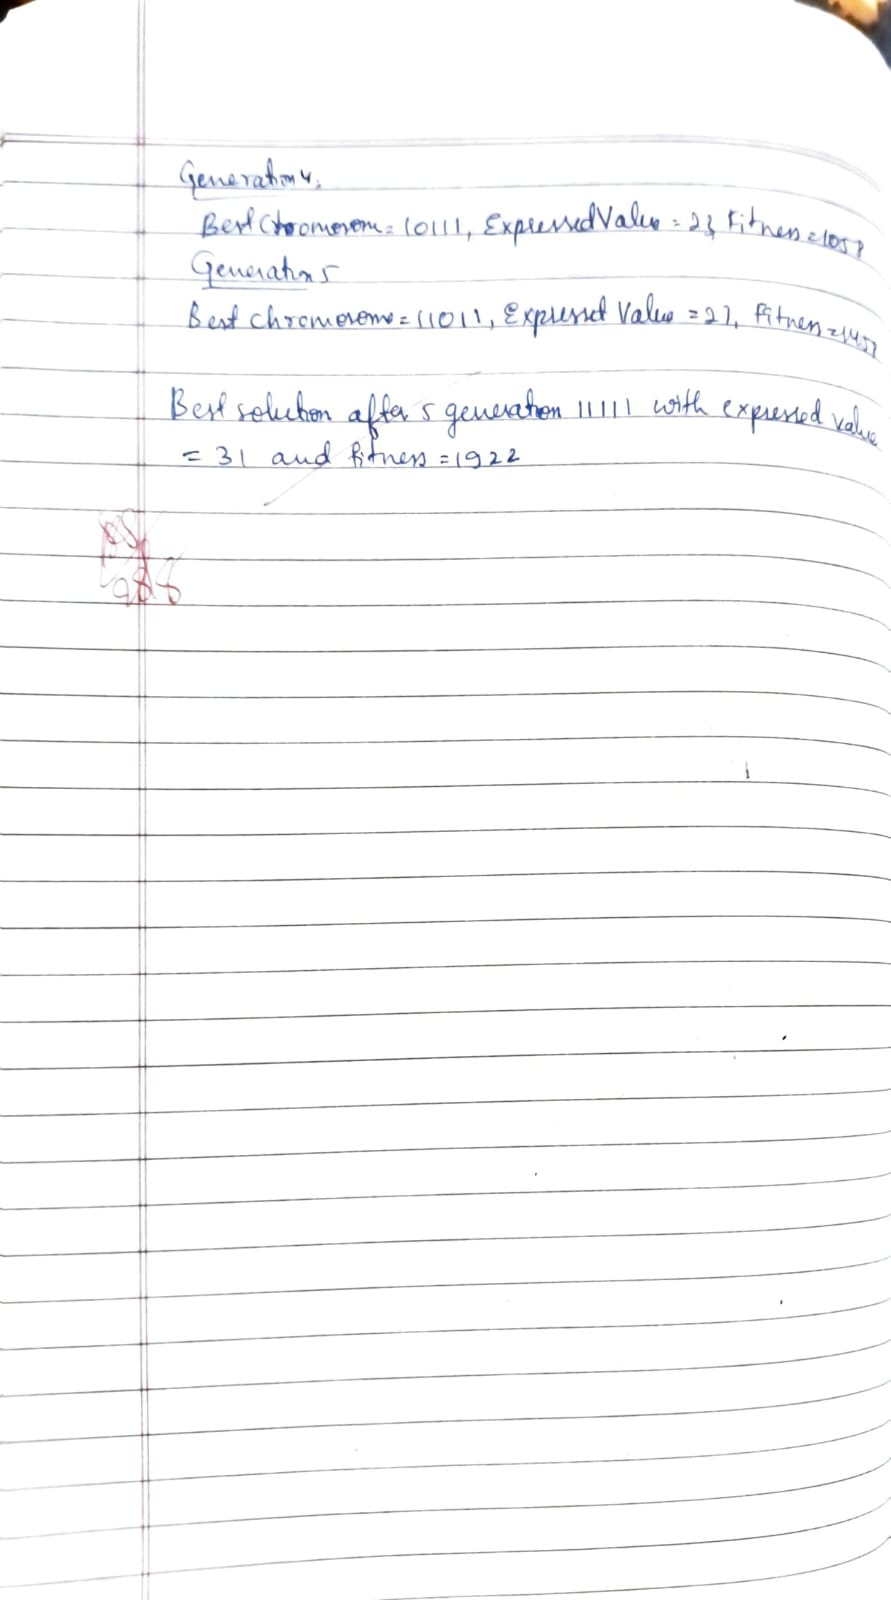 Generation 4:
Best Chromosom = 10111, Expressed Value = 23, Fitness = 1058
Generation 5
Best chromosome = 11011, Expressed Value = 27, Fitness = 1458
Best solution after 5 generation 11111 with expressed value
= 31 and fitness = 1922